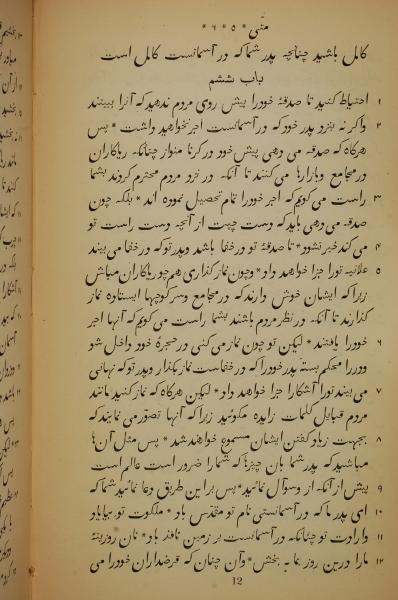 متی * ۵ * ۶ *
کامل باشید چنانچه پدر شما که در آسمانست کامل است
باب ششم
۱ احتیاط کنید تا صدقهٔ خودرا پیش روی مردم ندهید که آنرا ببینند
۲ واگر نه بنزد پدر خود که در آسمانست اجر نخواهید داشت * پس
هرگاه که صدقه می دهی پیش خود در کرنا منواز چنانکه ریاکاران
در مجامع وبازارها می کنند تا آنکه در نزد مردم محترم گردند بشما
۳ راست می گویم که اجر خودرا تمام تحصیل نموده اند * بلکه چون
صدقه می دهی باید که دست چپت از آنچه دست راست تو
۴ می کند خبر نشود * تا صدقهٔ تو در خفا باشد وپدر تو که در خفا می بیند
۵ علانیه تورا جزا خواهد داد * وچون نماز گذاری همچو ریاکاران مباش
زیرا که ایشان خوش دارند که در مجامع وسر کوچها ایستاده نماز
گذارند تا آنکه در نظر مردم باشند بشما راست می گویم که آنها اجر
۶ خودرا یافتند * لیکن تو چون نماز می کنی در حجرهٔ خود داخل شو
ودررا محکم بسته پدر خودرا که در خفاست نماز بگذار وپدر تو که نهانی
۷ می بیند تورا آشکارا جزا خواهد داد * لیکن هرگاه که نماز کنید مانند
مردم قبایل کلمات زایده مگوئید زیرا که آنها تصور می نمایند که
۸ بجهت زیاد گفتن ایشان مسموع خواهند شد * پس مثل آن‌ها
مباشید که پدر شما بان چیزها که شمارا ضرور است عالم است
۹ پیش از آنکه از وسوآل نمائید * پس بر این طریق دعا نمائید شما که
۱۰ ای پدر ما که در آسمانستی نام تو مقدس باد * ملکوت تو بیاید
۱۱ وارادت تو چنانکه در آسمانست بر زمین نافذ باد * نان روزینهٔ
۱۲ مارا درین روز بما به بخش * وآن چنان که قرضداران خودرا می
12